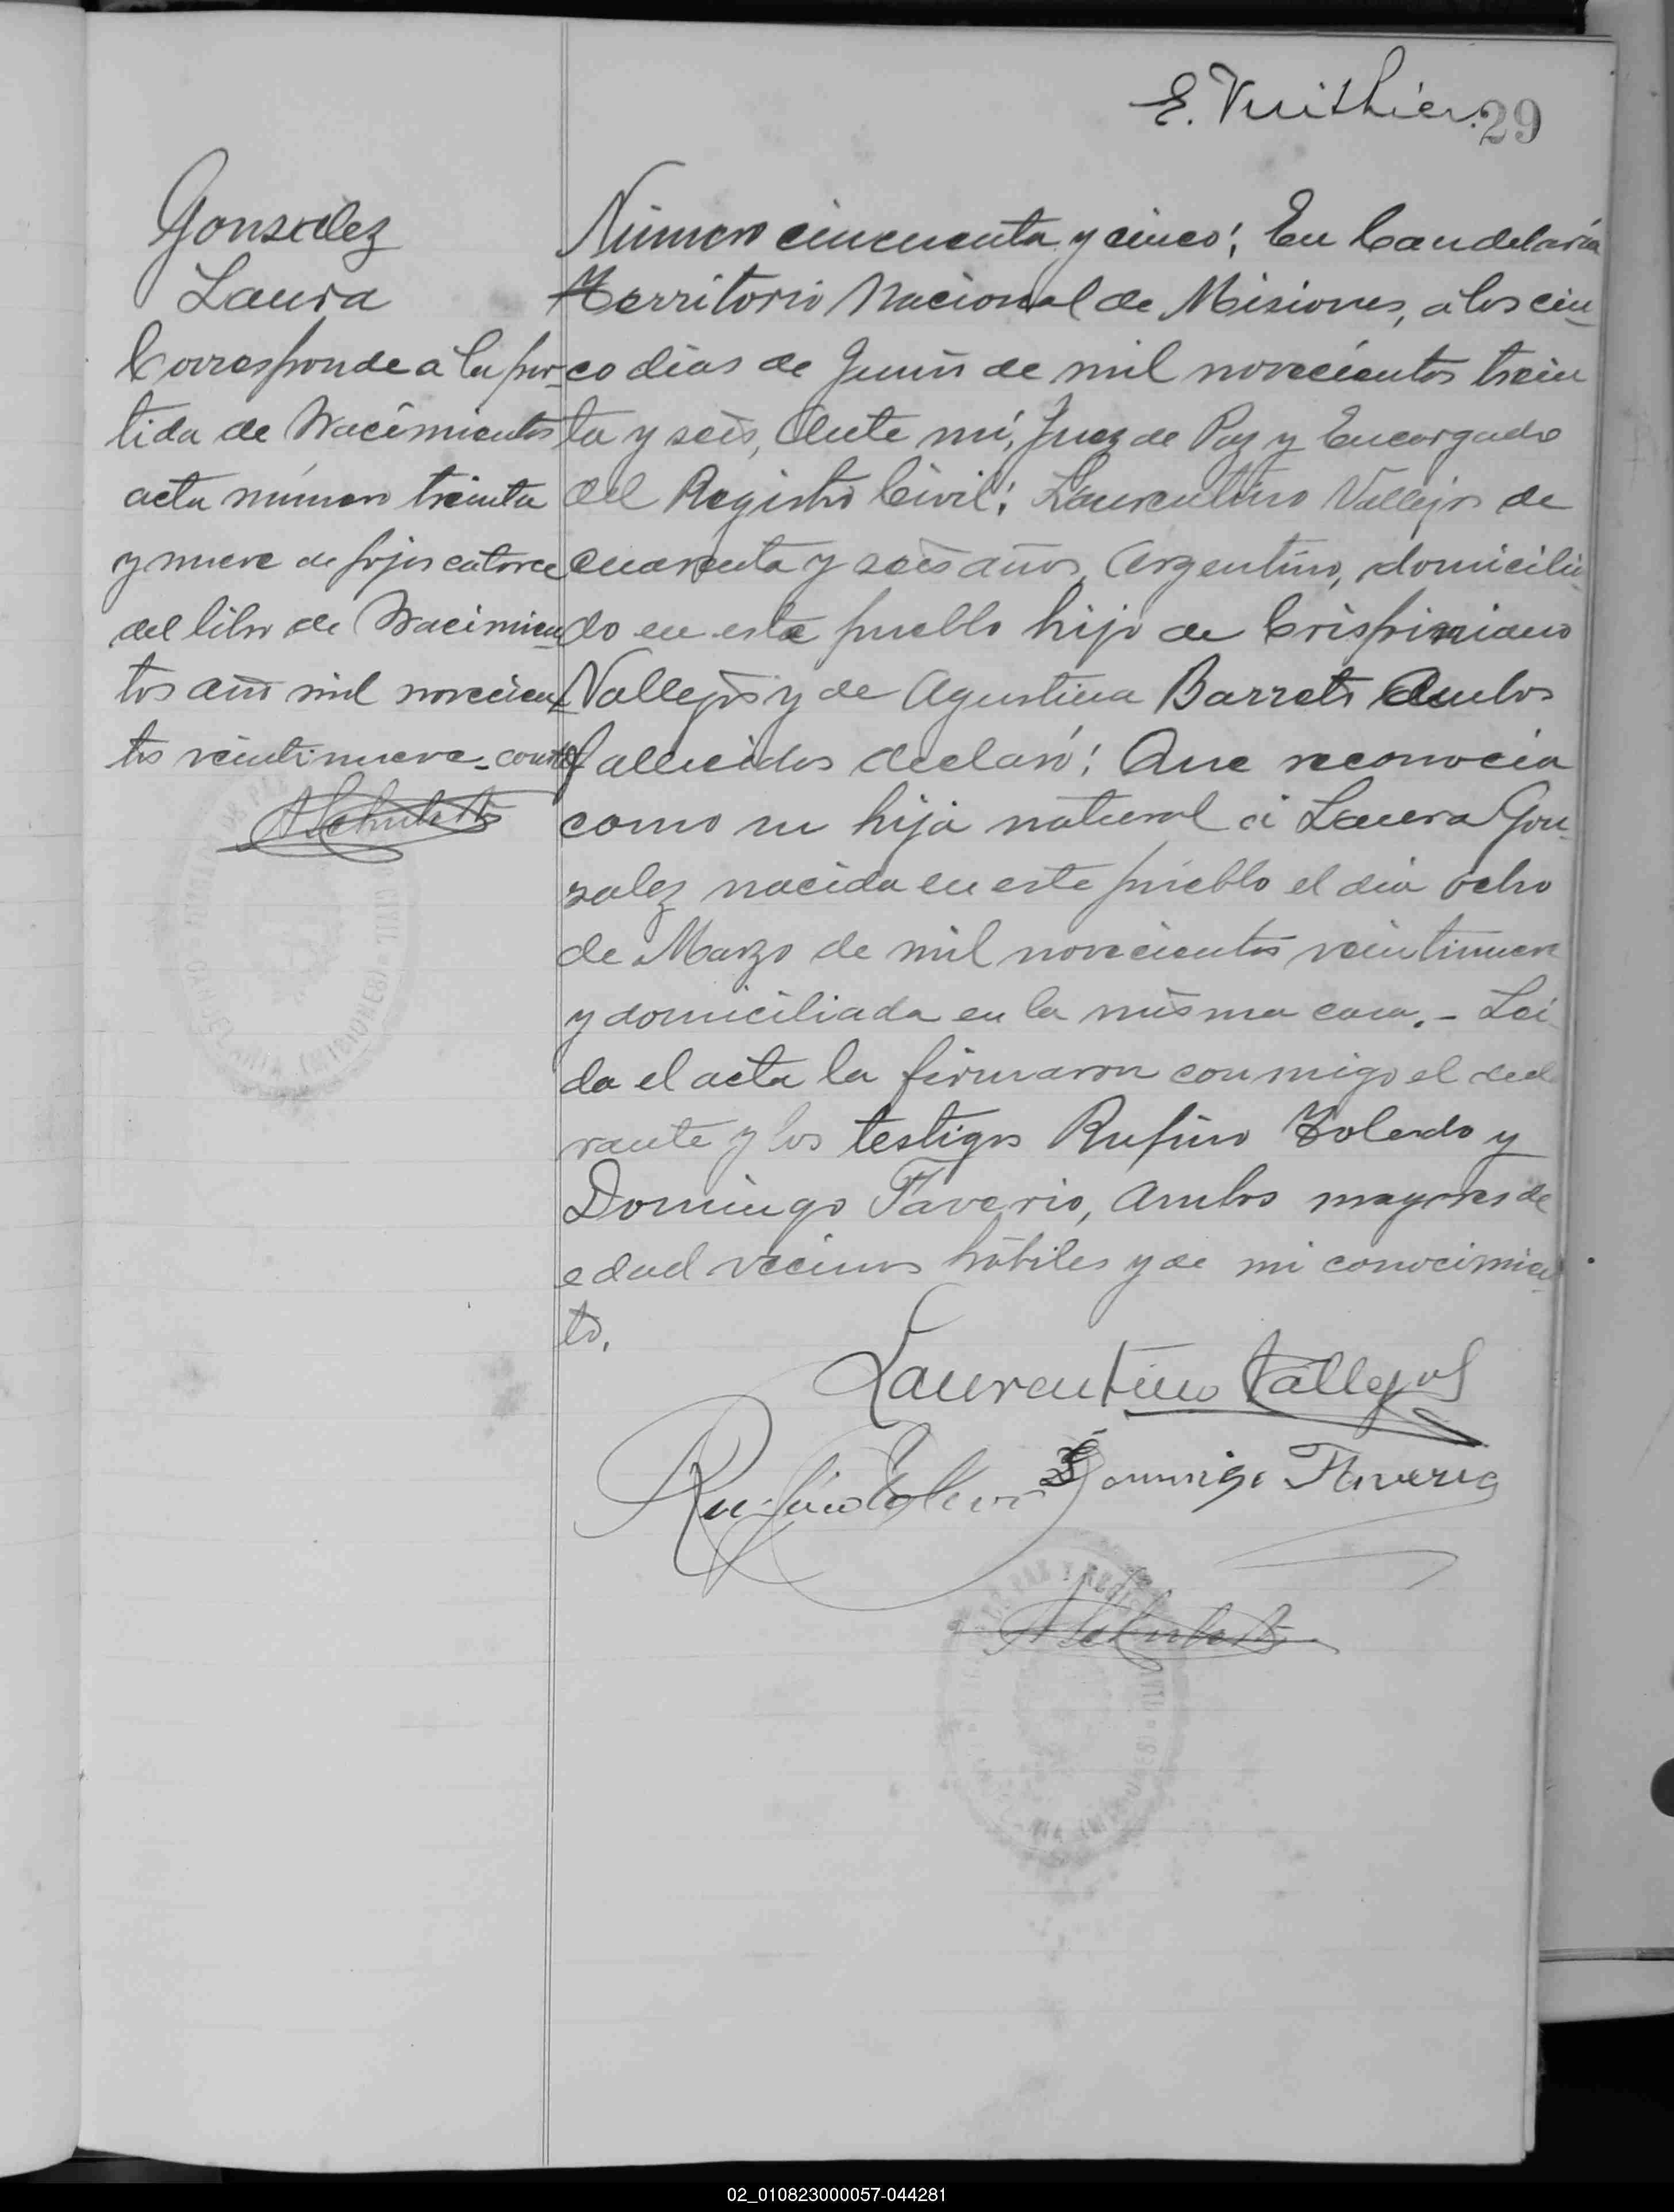 E. Vuithier. 29
Gonsalez
Laura
Corresponde a la par-
tida de Nacimientos
acta número treinta
y nueve de fojas catorce
del libro de Nacimien-
tos año mil novecien-
tos veintinueve.- conste
Número cincuenta y cinco: En Candelaria
Territorio Nacional de Misiones, á los cin-
co dias de Junio de mil novecientos trein
ta y seis, Ante mí, Juez de Paz y Encargado
del Registro Civil: Laurentino Vallejos de
cuarenta y seis años, Argentino, domicilia-
do en este pueblo hijo de Crispiniano
Vallejos y de Agustina Barreto Ambos
fallecidos declaró: Que reconocia
como su hija natural á Laura Gon-
salez nacida en este pueblo el dia ocho
de Marzo de mil novecientos veintinueve
y domiciliada en la misma casa.- Lei-
da el acta la firmaron conmigo el decl
rante y los testigos Rufino Toledo y
Domingo Taverio, Ambos mayores de
edad vecinos hábiles y de mi conocimien-
to.
Laurentino Vallejos
Rufino Toledo Domingo Taverio
02_010823000057-044281